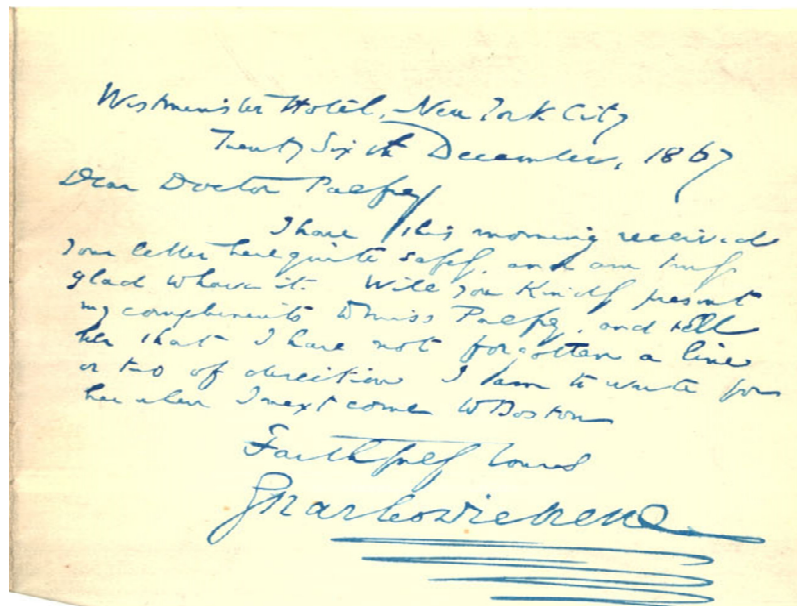 Westminster Hotel, New York City
Twenty Sixth December, 1867
Dear Doctor Palfrey
I have this morning received
your letter here quite safely, and am truly
glad to have it. Will you kindly present
my compliments to Miss Palfrey, and tell
her that I have not forgotten a line
or two of direction I am to write for
her when I next come to Boston
Faithfully Yours
Charles Dickens